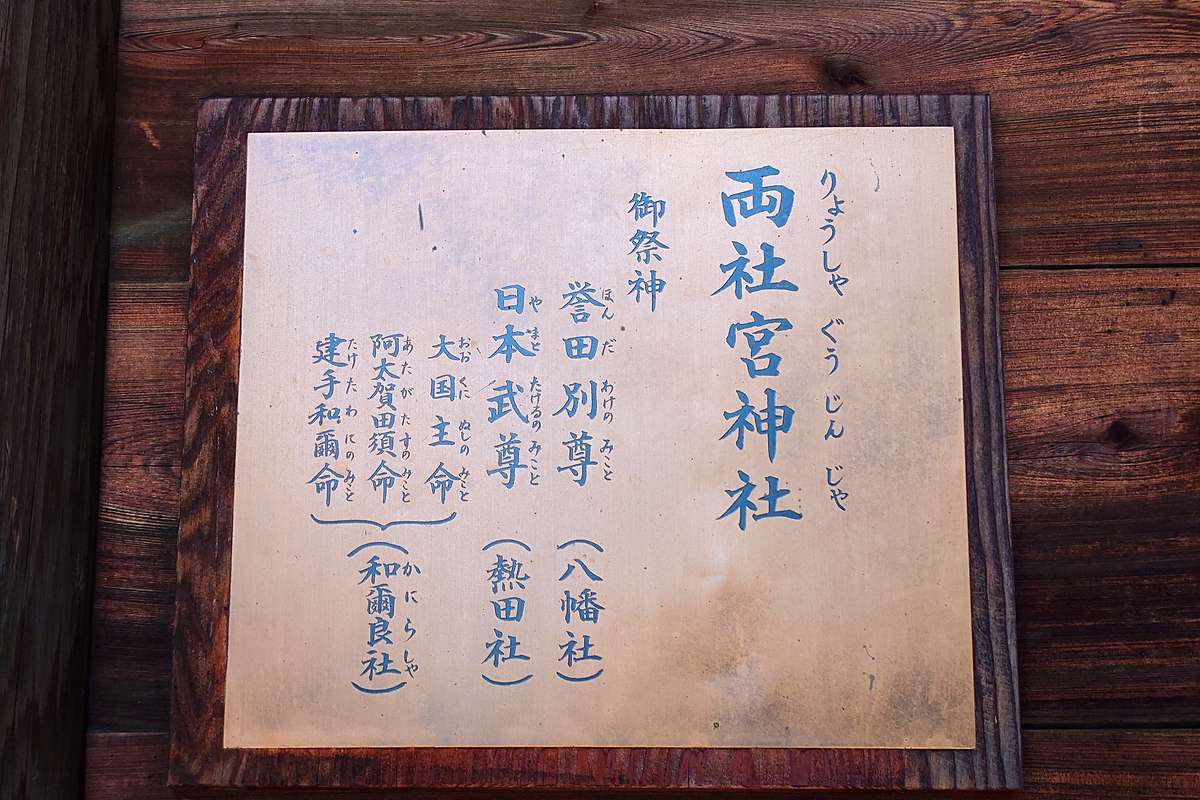 りょうしゃ ぐう じん じゃ
両社宮神社
御祭神
ほん だ わけの みこと
誉田別尊 (八幡社)
や まと たけるの みこと
日本武尊 (熱田社)
おお くに ぬしの みこと
大国主命
あたがたすのみこと
阿太賀田須命
たけたわにのみこと
建手和爾命
かにらしゃ
(和爾良社)